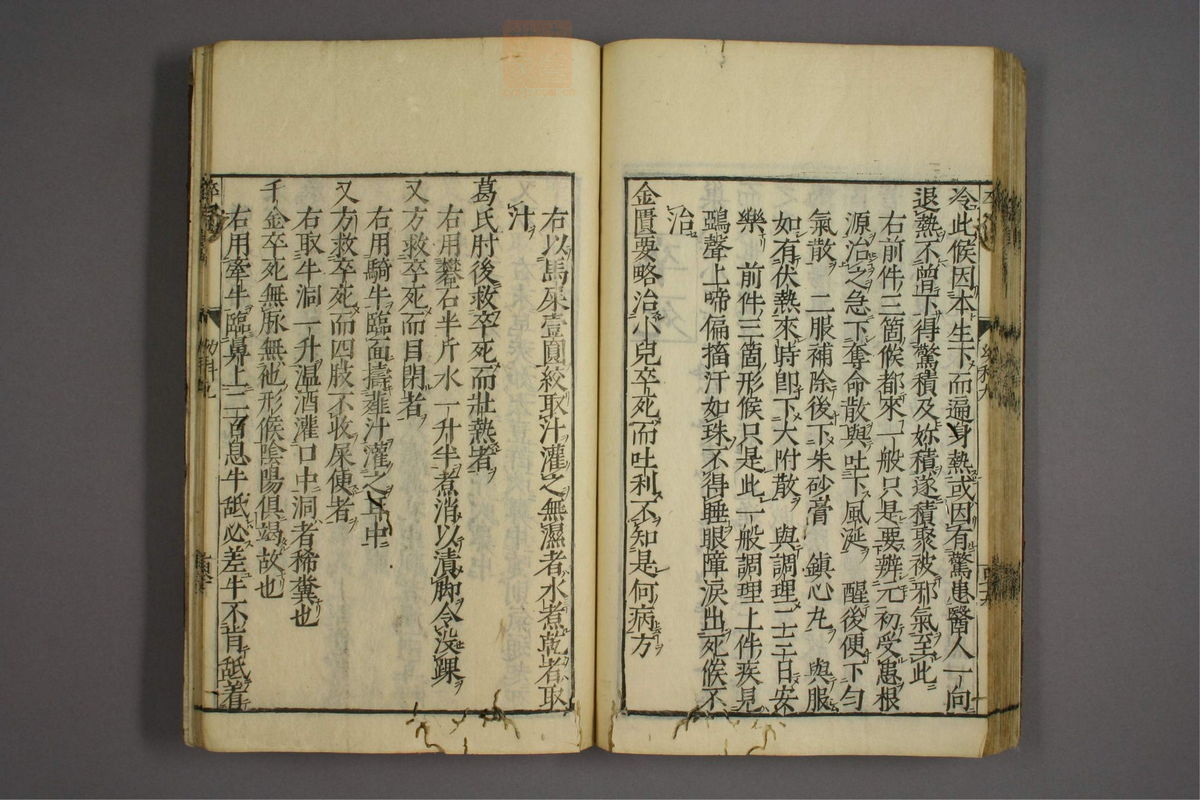 冷此候因本生下而遍身熱或因有驚患醫人一向
退熱不曾下得驚積及妳積遂積聚被邪氣至此
右前件三箇候都來一般只是要辨元初受患根
源治之急下奪命散與吐下風涎 醒後便下勻
氣散 二服補除後下朱砂膏 鎮心丸 與服
如有伏熱來時即下大附散 與調理二十三日安
樂 前件三箇形候只是此一般調理上件疾見
鵶聲上啼偏搐汗如珠不得睡眼障淚出死候不
治
金匱要略治小兒卒死而吐利不知是何病方
右以馬屎壹圓絞取汁灌之無濕者水煮乾者取
汁
葛氏肘後救卒死而壯熱者
右用礬石半斤水一升半煮消以漬脚令没踝
又方救卒死而目閉者
右用騎牛臨面擣薤汁灌之耳中
又方救卒死而四肢不收屎便者
右取牛洞一升温酒灌口中洞者稀糞也
千金卒死無脉無他形候陰陽俱竭故也
右用牽牛臨鼻上二百息牛舐必差牛不肯舐着